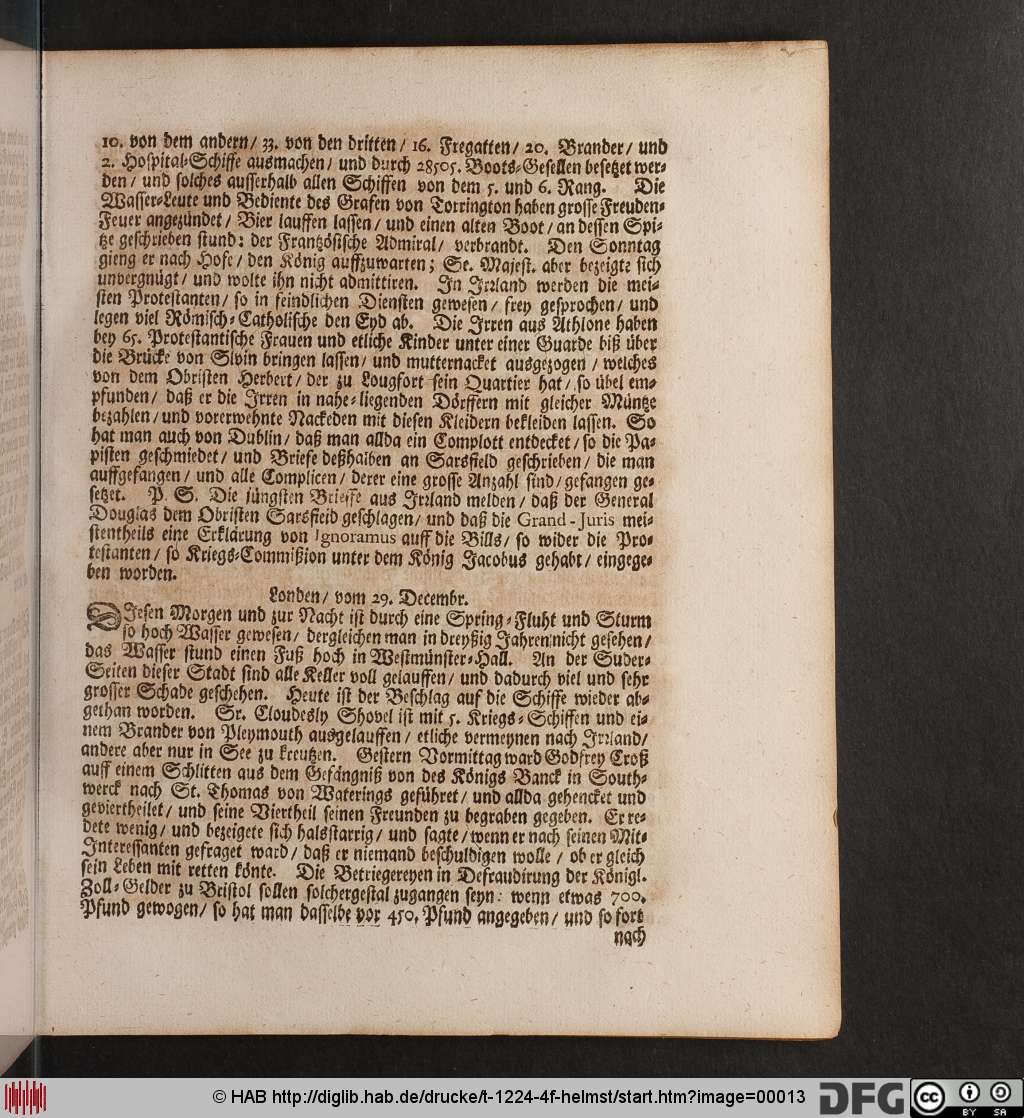 10. von dem andern/ 33. von den dritten/ 16. Fregatten/ 20. Brander/ und
2. Hospital-Schiffe ausmachen/ und durch 28505. Boots-Gesellen besetzet wer-
den/ und solches ausserhalb allen Schiffen von dem 5. und 6. Rang. Die
Wasser-Leute und Bediente des Grafen von Torrington haben grosse Freuden-
Feuer angezündet/ Bier lauffen lassen/ und einen alten Boot/ an dessen Spi-
tze geschrieben stund: der Frantzösische Admiral/ verbrandt. Den Sonntag
gieng er nach Hofe/ den König auffzuwarten; Se. Majest. aber bezeigte sich
unvergnügt/ und wolte ihn nicht admittiren. In Irrland werden die mei-
sten Protestanten/ so in feindlichen Diensten gewesen/ frey gesprochen/ und
legen viel Römisch-Catholische den Eyd ab. Die Irren aus Athlone haben
bey 65. Protestantische Frauen und etliche Kinder unter einer Guarde biß über
die Brücke von Slvin bringen lassen/ und mutternacket ausgezogen/ welches
von dem Obristen Herbert/ der zu Lougfort sein Quartier hat/ so übel em-
pfunden/ daß er die Irren in nahe-liegenden Dörffern mit gleicher Müntze
bezahlen/ und vorerwehnte Nackeden mit diesen Kleidern bekleiden lassen. So
hat man auch von Dublin/ daß man allda ein Complott entdecket/ so die Pa-
pisten geschmiedet/ und Briefe deßhalben an Sarsfield geschrieben/ die man
auffgefangen/ und alle Complicen/ derer eine grosse Anzahl sind/ gefangen ge-
setzet. P. S. Die jüngsten Brieffe aus Irrland melden/ daß der General
Douglas dem Obristen Sarsfield geschlagen/ und daß die Grand-Juris mei-
stentheils eine Erklärung von Ignoramus auff die Bills/ so wider die Pro-
testanten/ so Kriegs-Commißion unter dem König Jacobus gehabt/ eingege-
ben worden.
Londen/ vom 29. Decembr.
DIesen Morgen und zur Nacht ist durch eine Spring-Fluht und Sturm
so hoch Wasser gewesen/ dergleichen man in dreyßig Jahren nicht gesehen/
das Wasser stund einen Fuß hoch in Westmünster-Hall. An der Suder-
Seiten dieser Stadt sind alle Keller voll gelauffen/ und dadurch viel und sehr
grosser Schade geschehen. Heute ist der Beschlag auf die Schiffe wieder ab-
gethan worden. Sr. Cloudesly Shovel ist mit 5. Kriegs-Schiffen und ei-
nem Brander von Pleymouth ausgelauffen/ etliche vermeynen nach Irrland/
andere aber nur in See zu kreutzen. Gestern Vormittag ward Godfrey Croß
auff einem Schlitten aus dem Gefängniß von des Königs Banck in South-
werck nach St. Thomas von Waterings geführet/ und allda gehencket und
geviertheilet/ und seine Viertheil seinen Freunden zu begraben gegeben. Er re-
dete wenig/ und bezeigete sich halsstarrig/ und sagte/ wenn er nach seinen Mit-
Interessanten gefraget ward/ daß er niemand beschuldigen wolle/ ob er gleich
sein Leben mit retten könte. Die Betriegereyen in Defraudirung der Königl.
Zoll-Gelder zu Bristol sollen solchergestal zugangen seyn: wenn etwas 700.
Pfund gewogen/ so hat man dasselbe vor 450. Pfund angegeben/ und so fort
nach
© HAB http://diglib.hab.de/drucke/t-1224-4f-helmst/start.htm?image=00013
DFG
cc
BY SA